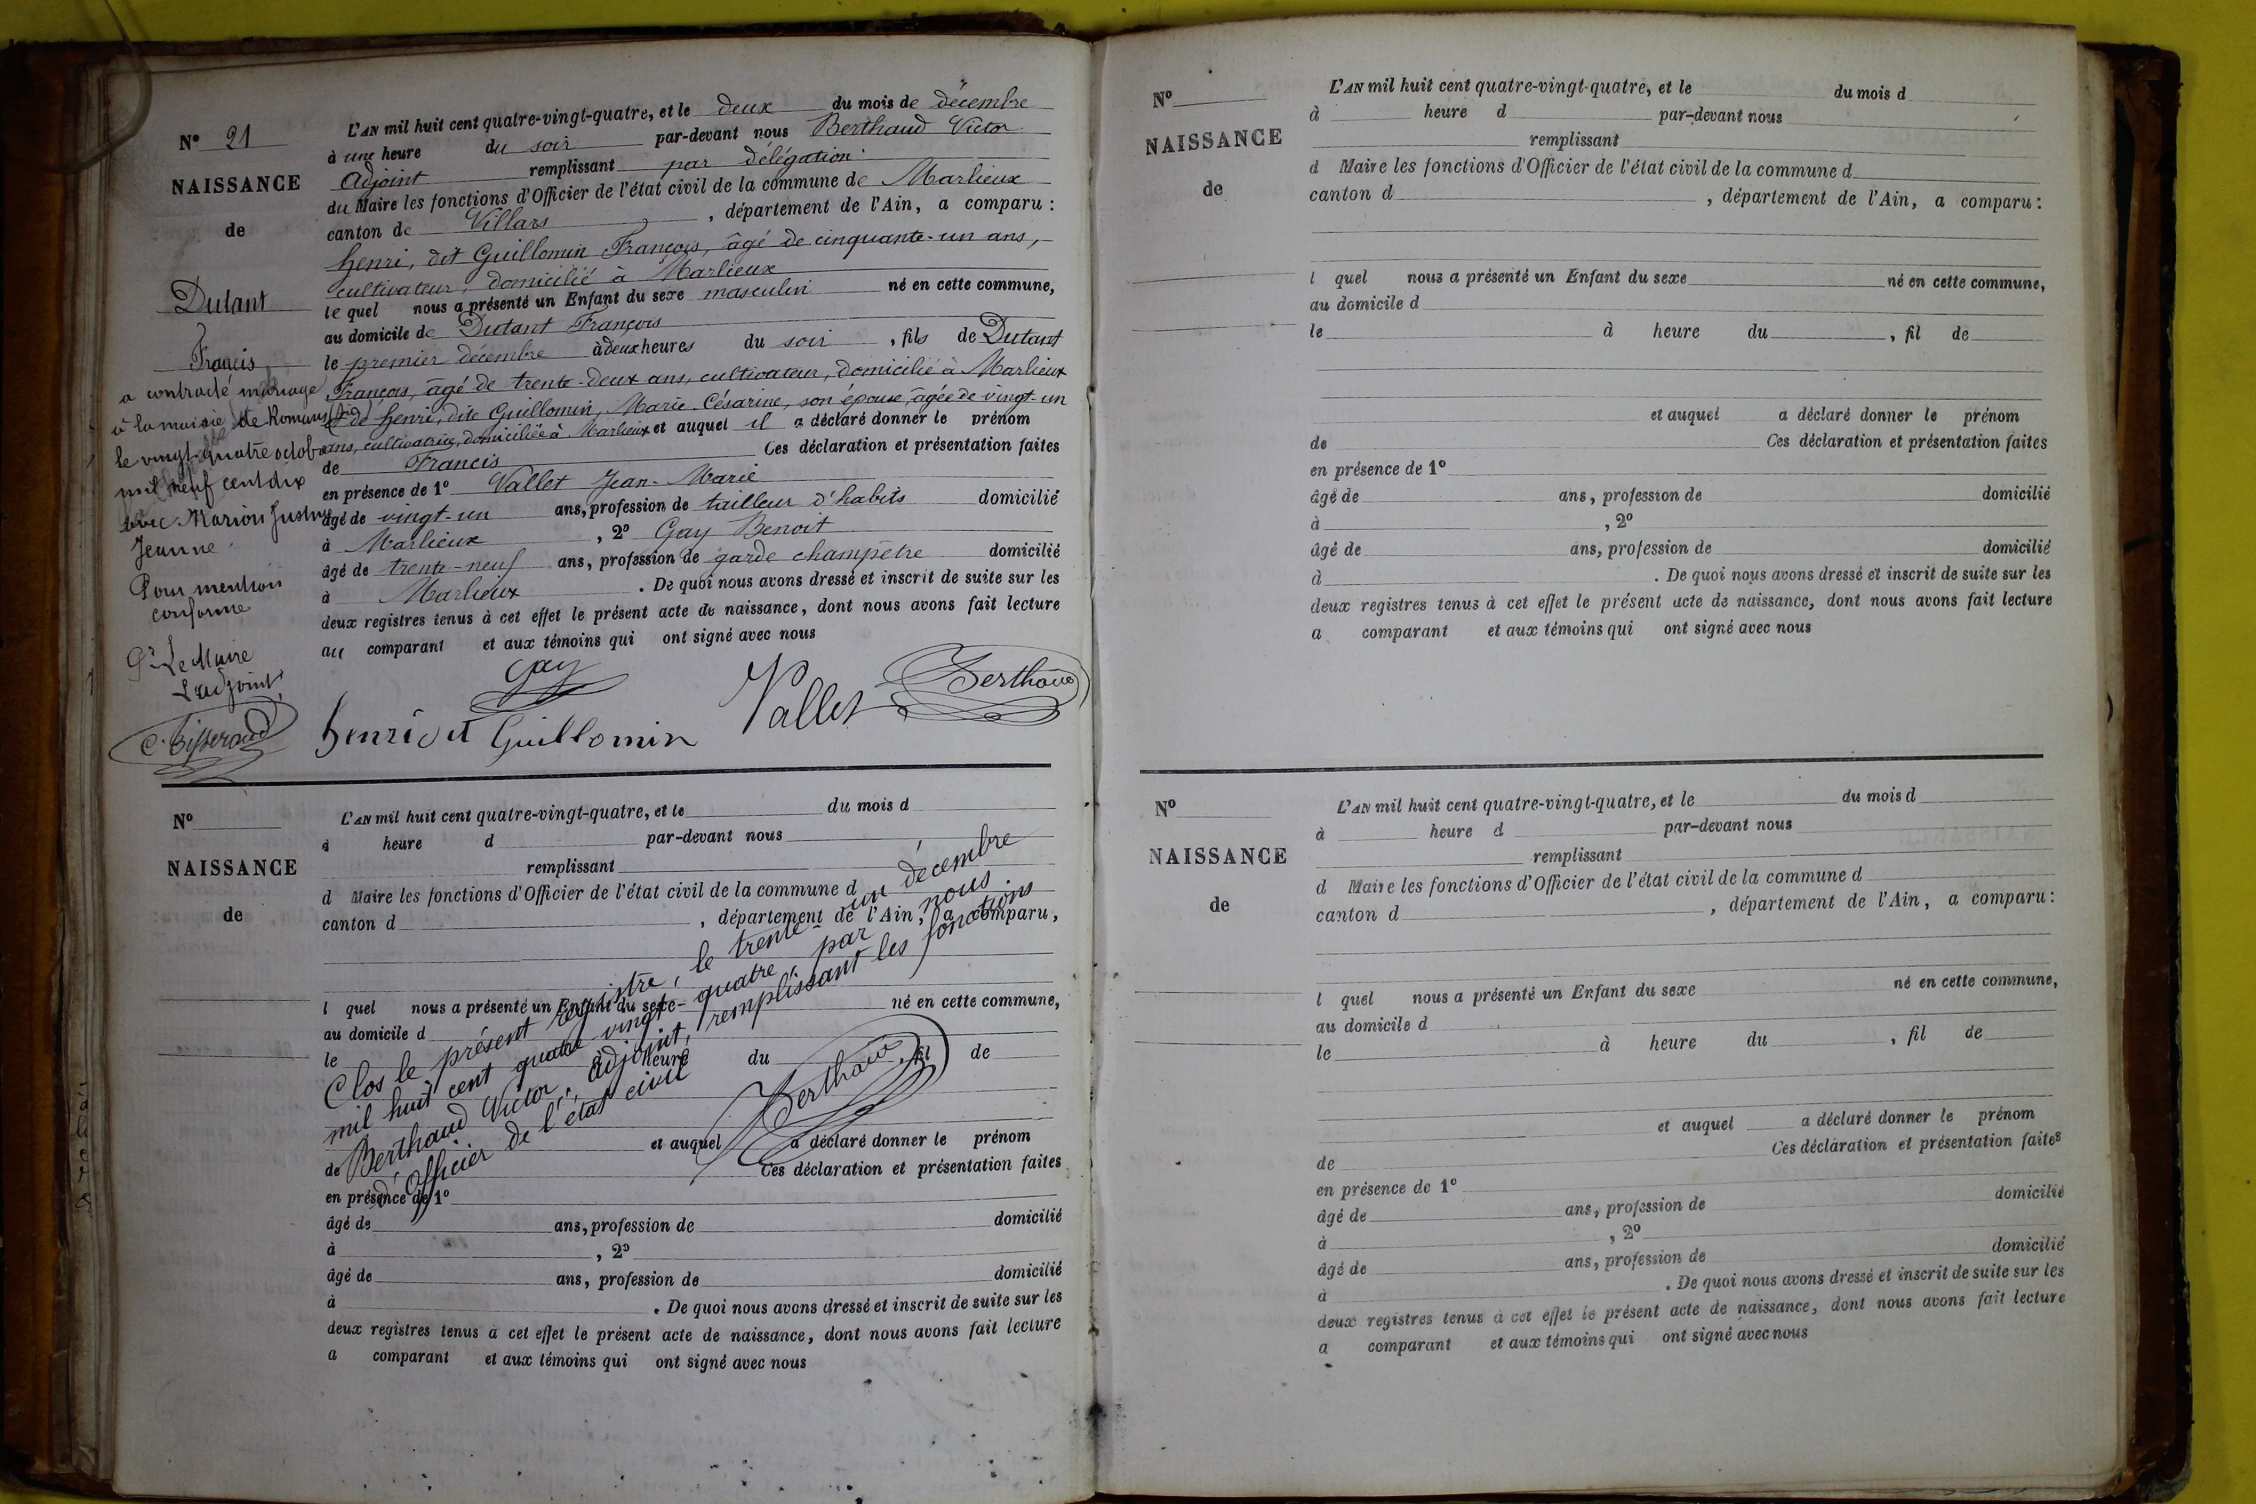 N° 21
NAISSANCE
de
Dutant
Francis
a contracté mariage
à la mairie de Romans (Ain)
le vingt-quatre octobre
mil neuf cent dix
avec Marion Justine
Jeanne.
Pour mention
conforme
Pr Le Maire
L'adjoint,
C. Tisserand
L'AN mil huit cent quatre-vingt-quatre, et le deux du mois de décembre
à une heure du soir par-devant nous Berthaud Victor
Adjoint remplissant par délégation
du Maire les fonctions d'Officier de l'état civil de la commune de Marlieux
canton de Villars, département de l'Ain, a comparu :
henri, dit Guillomin François, âgé de cinquante-un ans,
cultivateur, domicilié à Marlieux
le quel nous a présenté un Enfant du sexe masculin né en cette commune,
au domicile de Dutant François
le premier décembre à deux heures du soir, fils de Dutant
François, âgé de trente-deux ans, cultivateur, domicilié à Marlieux
et de henri, dite Guillomin, Marie-Césarine, son épouse, âgée de vingt-un
ans, cultivatrice, domiciliée à Marlieux et auquel il a déclaré donner le prénom
de Francis Ces déclaration et présentation faites
en présence de 1° Vallet Jean-Marie
âgé de vingt-un ans, profession de tailleur d'habits domicilié
à Marlieux, 2° Gay Benoit
âgé de trente-neuf ans, profession de garde champêtre domicilié
à Marlieux. De quoi nous avons dressé et inscrit de suite sur les
deux registres tenus à cet effet le présent acte de naissance, dont nous avons fait lecture
au comparant et aux témoins qui ont signé avec nous
Gay
Vallet
Berthaud
henri dit Guillomin
N°
NAISSANCE
de
L'AN mil huit cent quatre-vingt-quatre, et le du mois d
à heure d par-devant nous
remplissant
d Maire les fonctions d'Officier de l'état civil de la commune d
canton d , département de l'Ain, a comparu,
l quel nous a présenté un Enfant du sexe né en cette commune,
au domicile d
le à heure du , fil de
et auquel a déclaré donner le prénom
de Ces déclaration et présentation faites
en présence de 1°
âgé de ans, profession de domicilié
à , 2°
âgé de ans, profession de domicilié
à . De quoi nous avons dressé et inscrit de suite sur les
deux registres tenus à cet effet le présent acte de naissance, dont nous avons fait lecture
a comparant et aux témoins qui ont signé avec nous
Clos le présent registre, le trente un décembre
mil huit cent quatre vingt-quatre, par nous
Berthaud Victor, adjoint, remplissant les fonctions
d'officier de l'état civil
Berthaud
N°
NAISSANCE
de
L'AN mil huit cent quatre-vingt-quatre, et le du mois d
à heure d par-devant nous
remplissant
d Maire les fonctions d'Officier de l'état civil de la commune d
canton d , département de l'Ain, a comparu :
l quel nous a présenté un Enfant du sexe né en cette commune,
au domicile d
le à heure du , fil de
et auquel a déclaré donner le prénom
de Ces déclaration et présentation faites
en présence de 1°
âgé de ans, profession de domicilié
à , 2°
âgé de ans, profession de domicilié
à . De quoi nous avons dressé et inscrit de suite sur les
deux registres tenus à cet effet le présent acte de naissance, dont nous avons fait lecture
a comparant et aux témoins qui ont signé avec nous
N°
NAISSANCE
de
L'AN mil huit cent quatre-vingt-quatre, et le du mois d
à heure d par-devant nous
remplissant
d Maire les fonctions d'Officier de l'état civil de la commune d
canton d , département de l'Ain, a comparu :
l quel nous a présenté un Enfant du sexe né en cette commune,
au domicile d
le à heure du , fil de
et auquel a déclaré donner le prénom
de Ces déclaration et présentation faites
en présence de 1°
âgé de ans, profession de domicilié
à , 2°
âgé de ans, profession de domicilié
à . De quoi nous avons dressé et inscrit de suite sur les
deux registres tenus à cet effet le présent acte de naissance, dont nous avons fait lecture
a comparant et aux témoins qui ont signé avec nous